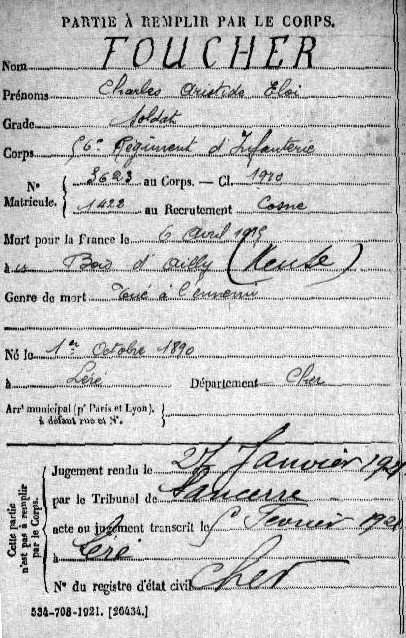 PARTIE À REMPLIR PAR LE CORPS.
Nom FOUCHER
Prénoms Charles Aristide Eloi
Grade Soldat
Corps 56e Régiment d'Infanterie
N° Matricule. { 3623 au Corps. — Cl. 1910
1422 au Recrutement Cosne
Mort pour la France le 6 Avril 1915
à au Bois d'Ailly (Meuse)
Genre de mort Tué à l'ennemi
Né le 1er Octobre 1890
à Léré Département Cher
Arrt municipal (pr Paris et Lyon),
à défaut rue et N°.
Cette partie n'est pas à remplir par le Corps.
Jugement rendu le 27 Janvier
par le Tribunal de Sancerre
acte ou jugement transcrit le 5 Février
à Léré
N° du registre d'état civil Cher
534-708-1921. [26434.]